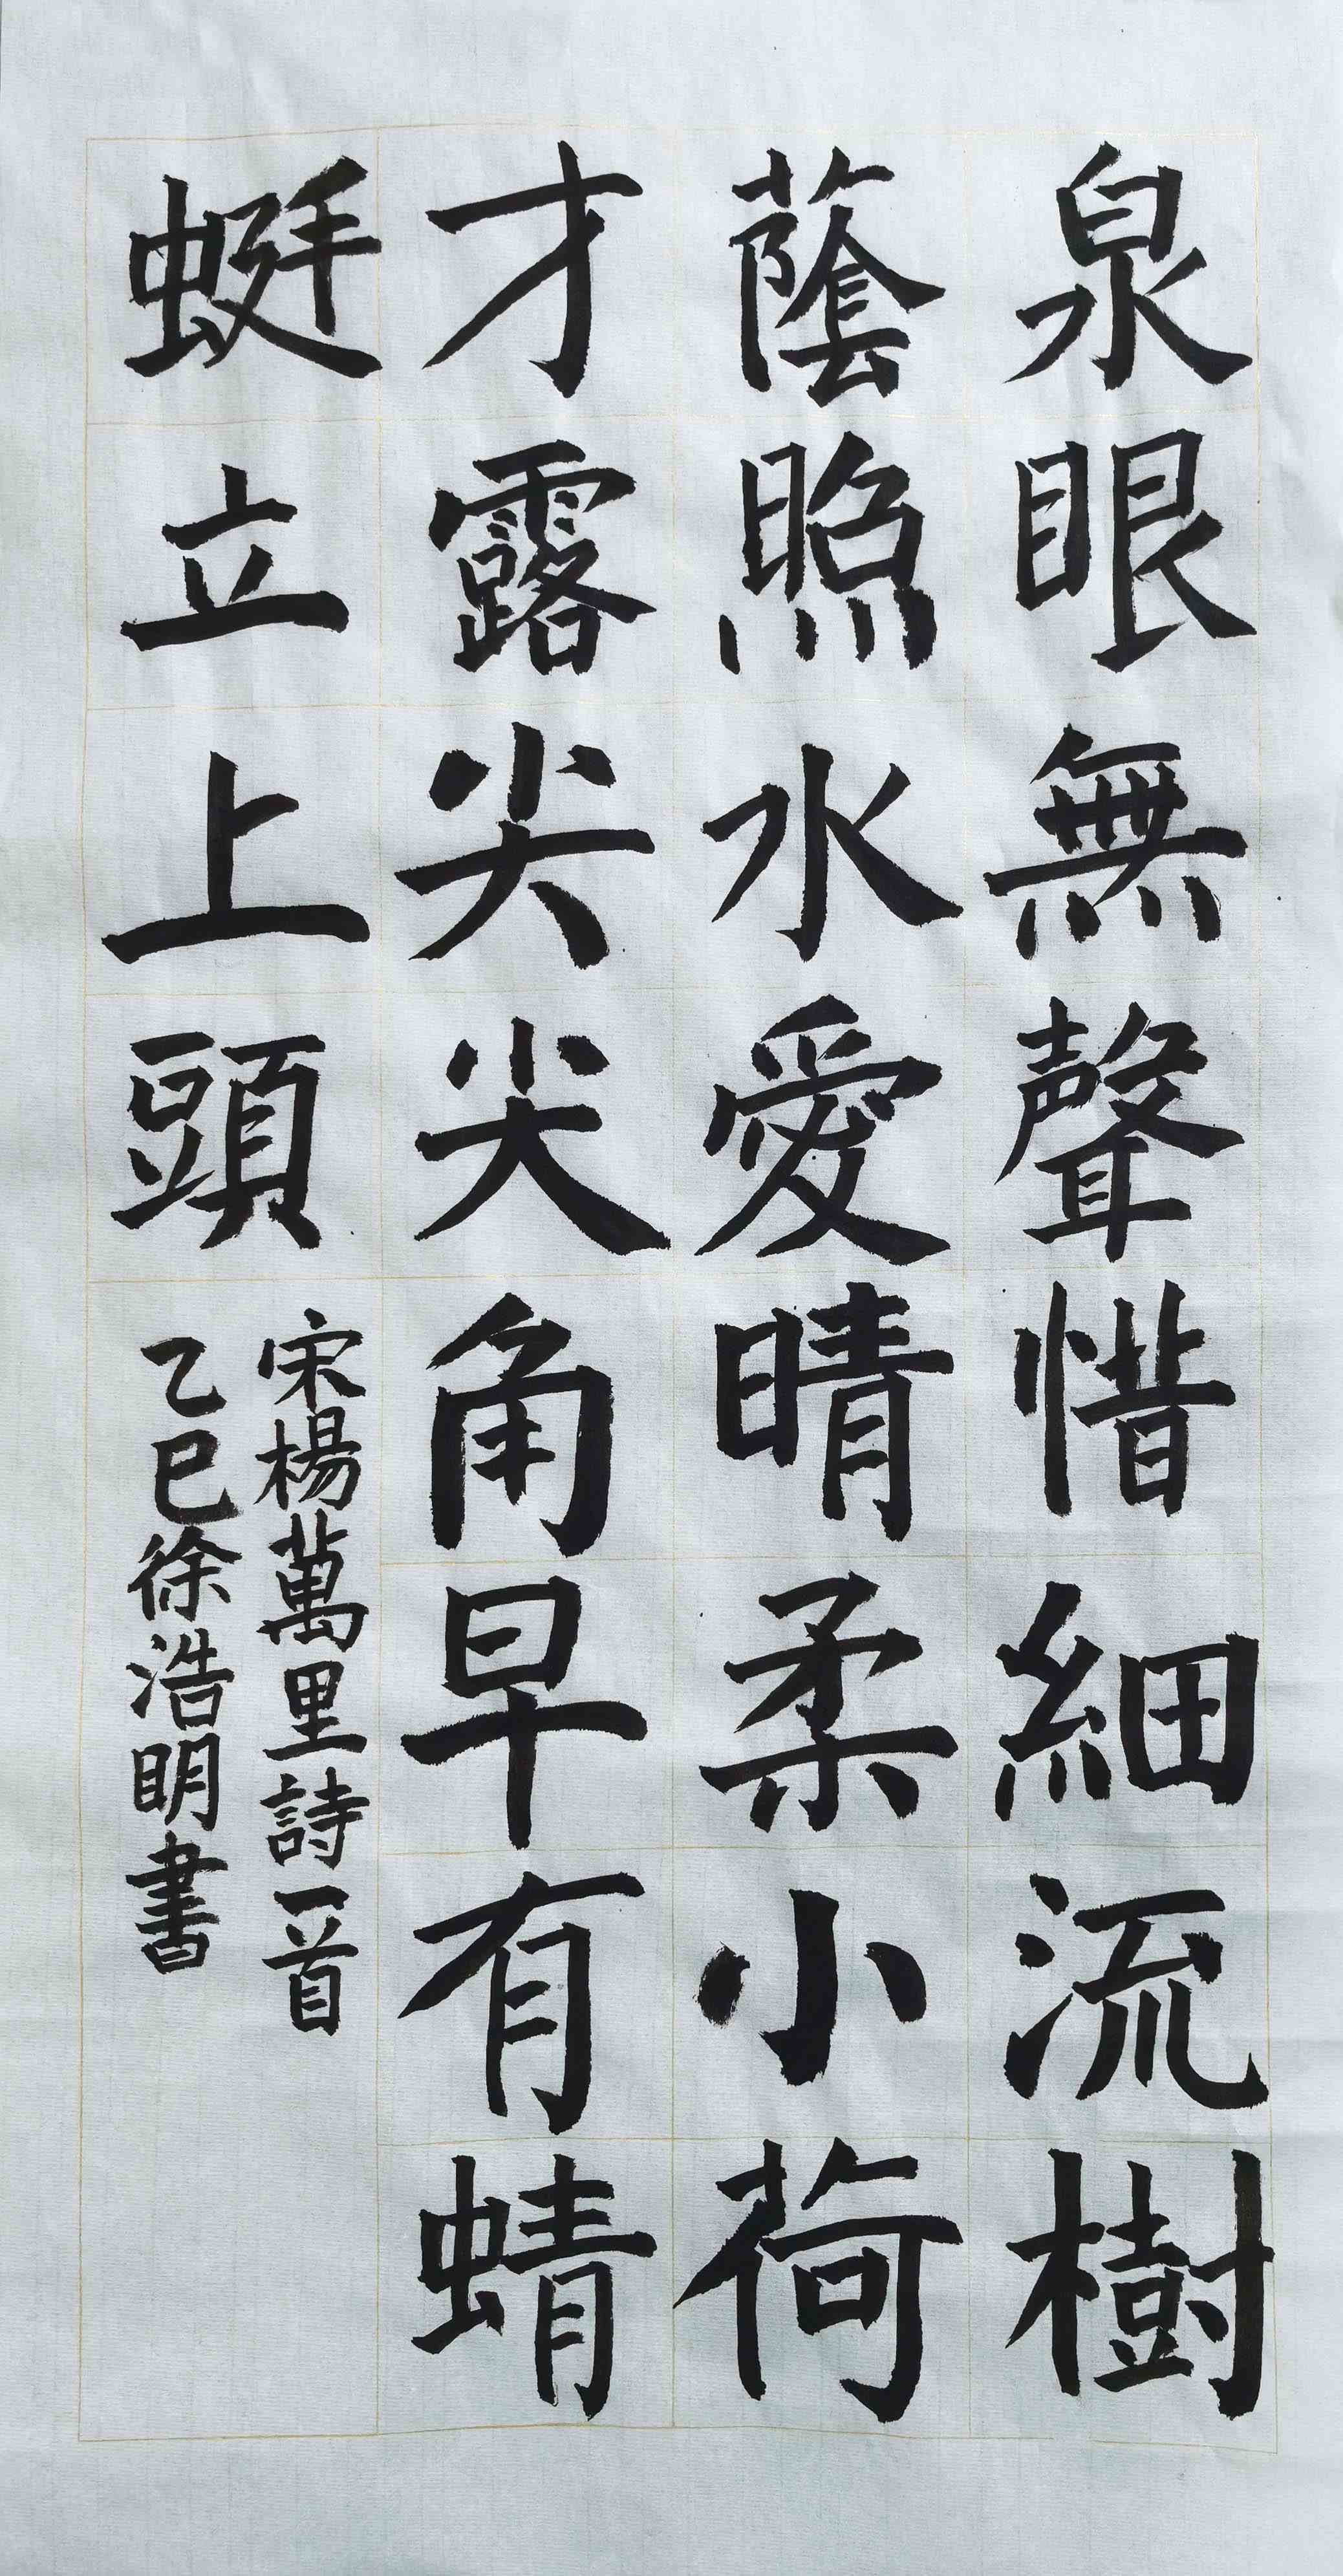 泉眼無聲惜細流樹
蔭照水愛晴柔小荷
才露尖尖角早有蜻
蜓立上上頭
宋楊萬里詩一首
乙巳徐浩明書